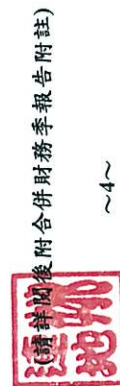 (請詳閱後附合併財務季報告附註)
~4~